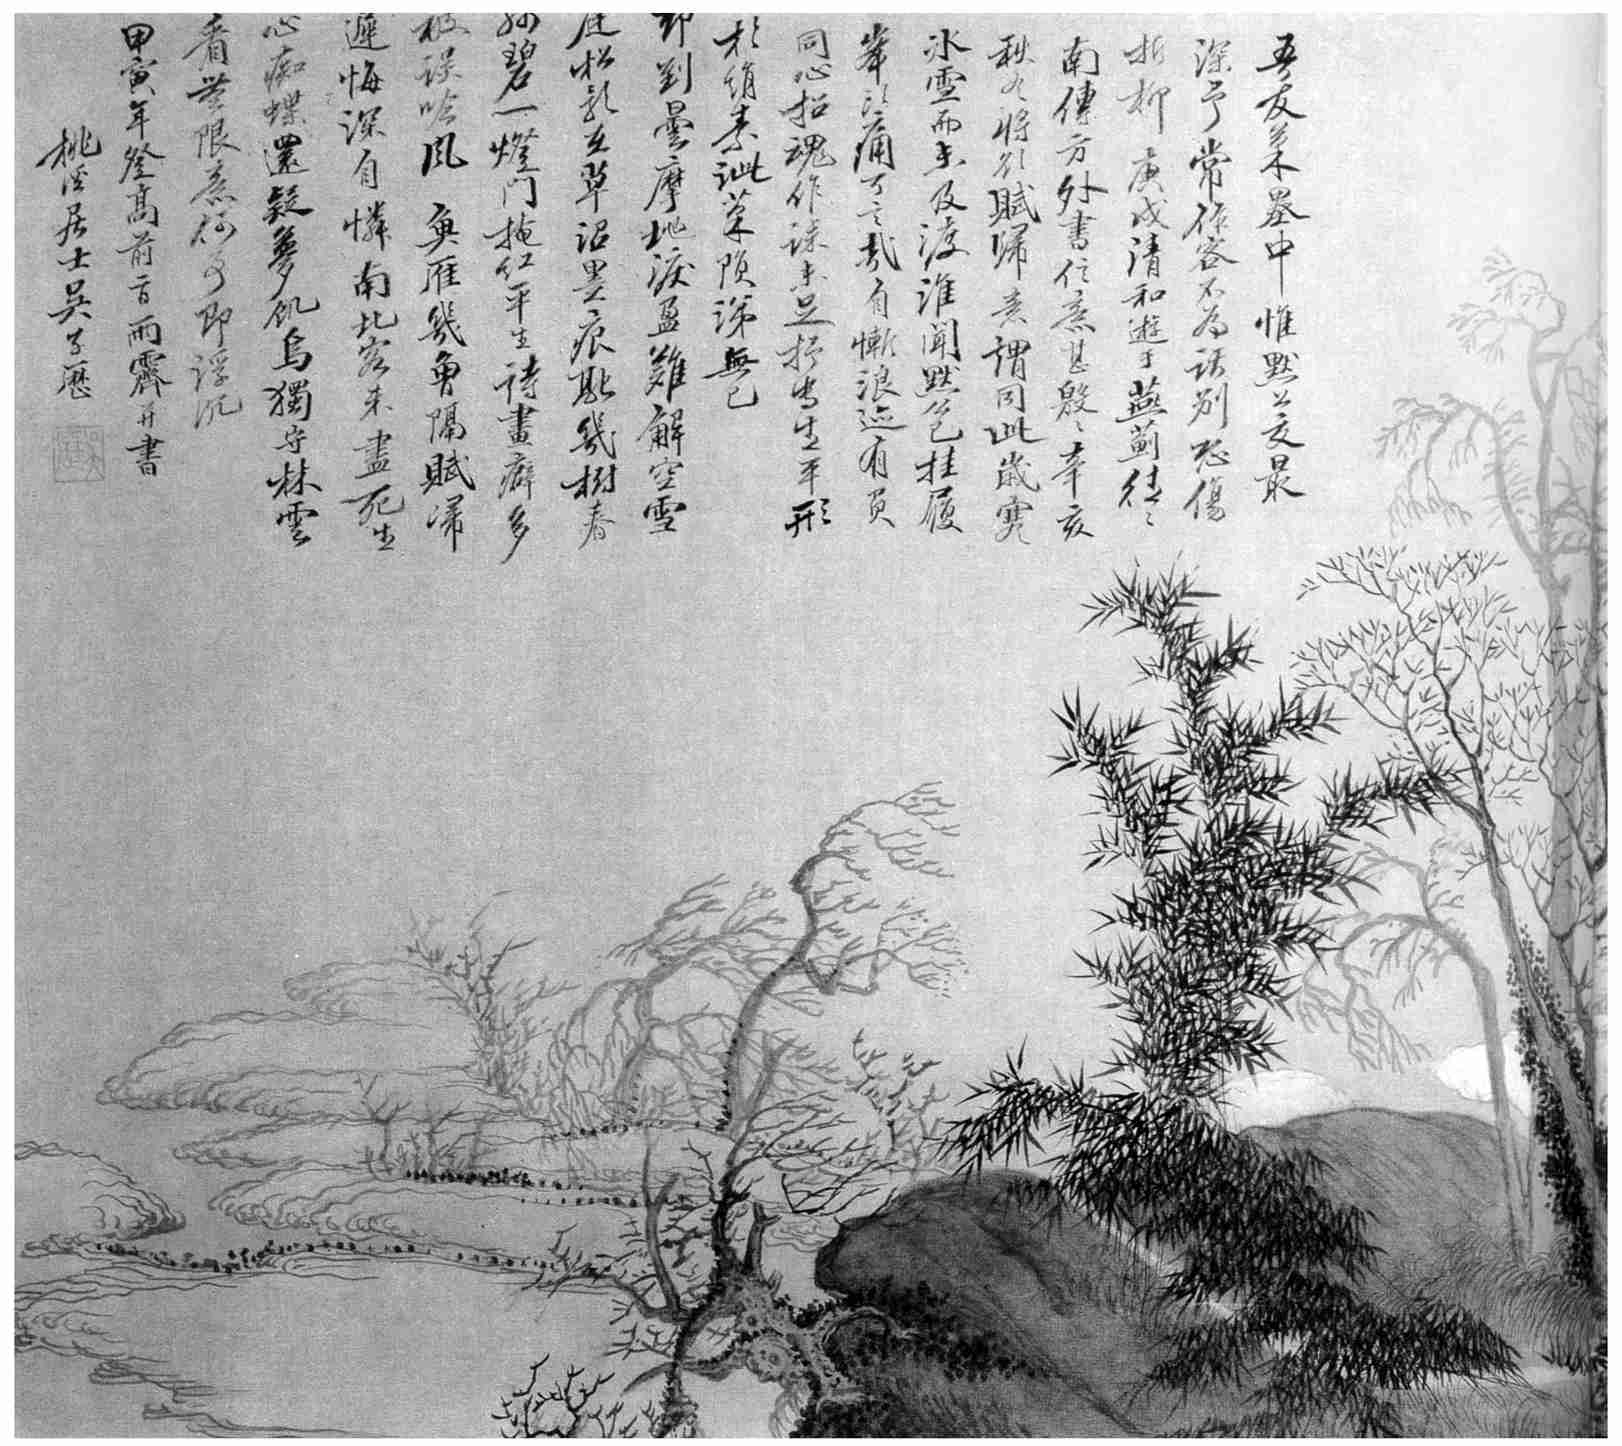 吾友業盡中惟默公交最
深予常作客不為話別恐傷
折柳庚戌清和遊于燕薊往往
南傳方外書信意甚殷殷辛亥
秋冬將欲賦歸意謂同此歲寒
冰雪而未及渡淮聞默公挂履
峯頭痛可言哉自慚浪迹有負
同心招魂作誄未足抒寫生平形
於絹素訛菜隕涕無已
却到曇摩地淚盈難解空雪
庭松影在草詔墨痕融幾樹春
殘碧一燈門掩紅平生詩畫癖多
被誤吟風 奐雁幾魯隔賦歸
遲悔深自憐南北客未盡死生
心癡蝶還疑夢飢烏獨守林雲
看無限意何事即浮沉
甲寅年登高前一日雨霽并書
桃溪居士吳子歷